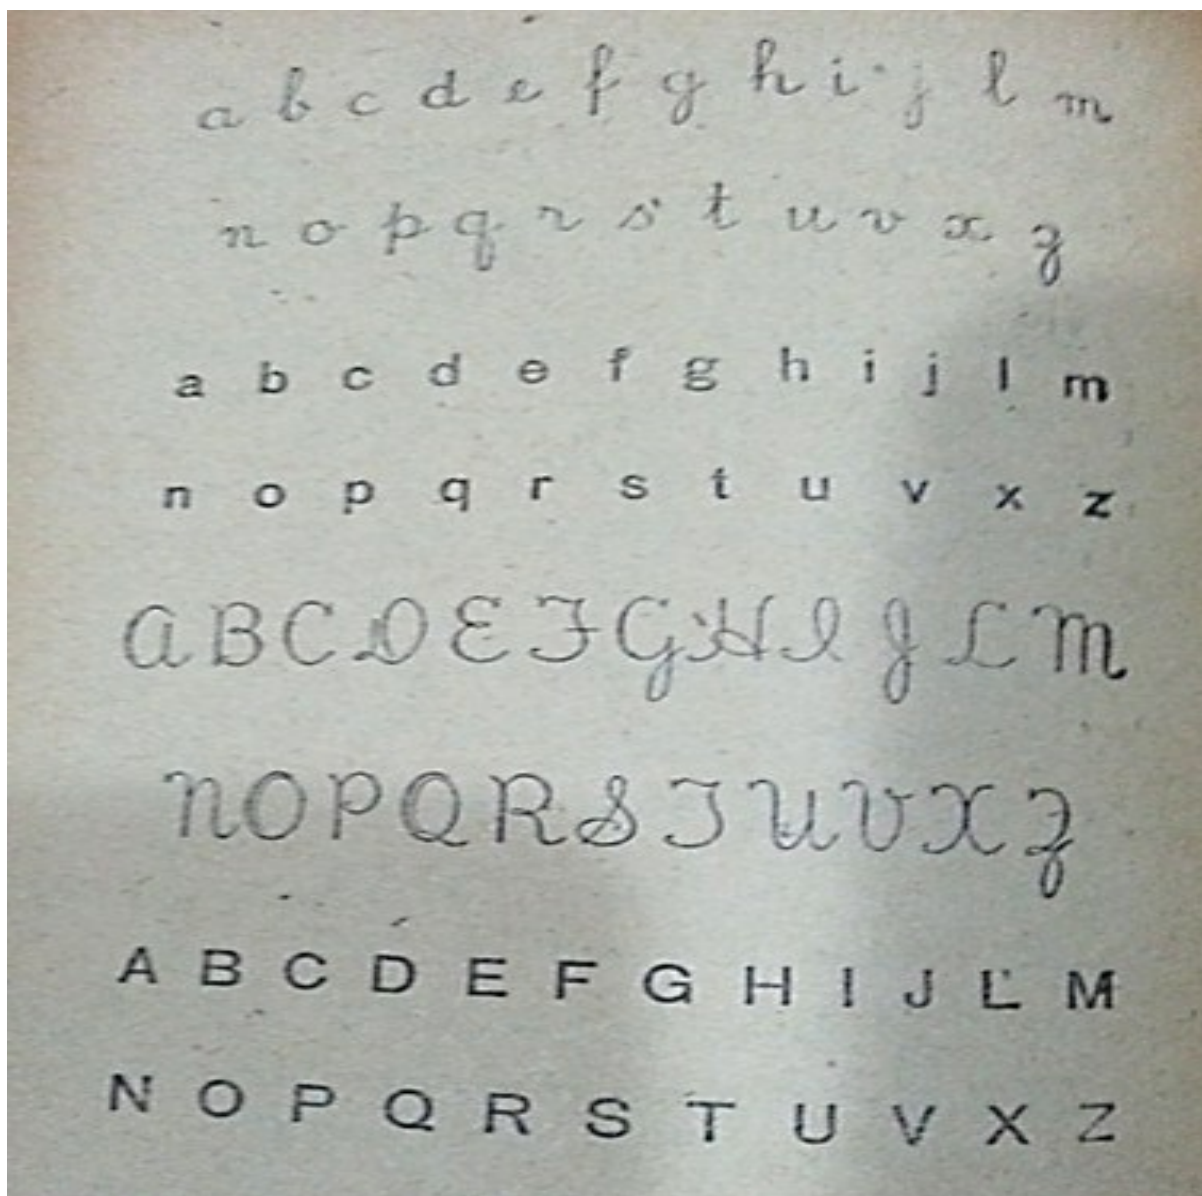 a b c d e f g h i j l m
n o p q r s t u v x z
a b c d e f g h i j l m
n o p q r s t u v x z
A B C D E F G H I J L M
N O P Q R S T U V X Z
A B C D E F G H I J L M
N O P Q R S T U V X Z